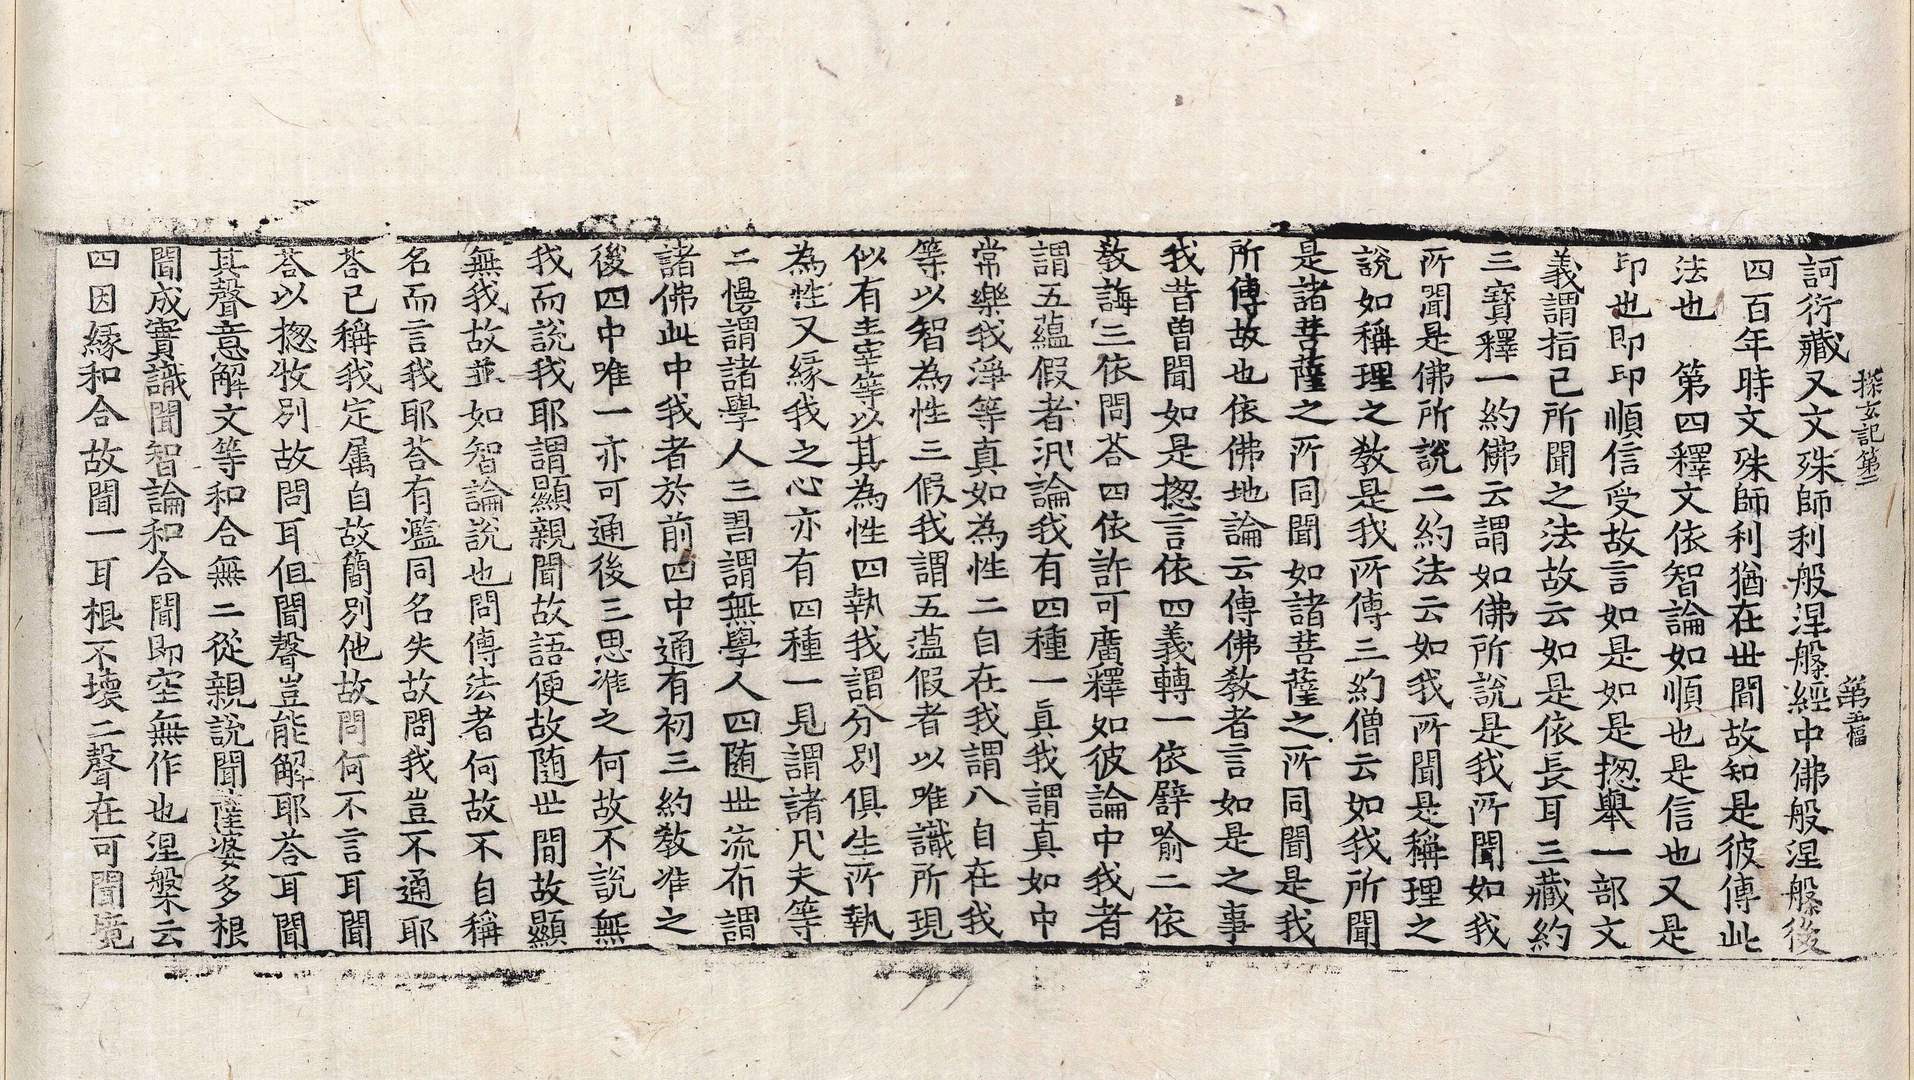 探玄記第二 第五幅
訶衍藏又文殊師利般涅槃經中佛般涅槃後
四百年時文殊師利猶在世間故知是彼傳此
法也 第四釋文依智論如順也是信也又是
印也即印順信受故言如是如是揔舉一部文
義謂指已所聞之法故云如是依長耳三藏約
三寶釋一約佛云謂如佛所說是我所聞如我
所聞是佛所說二約法云如我所聞是稱理之
說如稱理之教是我所傳三約僧云如我所聞
是諸菩薩之所同聞如諸菩薩之所同聞是我
所傳故也依佛地論云傳佛教者言如是之事
我昔曾聞如是揔言依四義轉一依辟喻二依
教誨三依問荅四依許可廣釋如彼論中我者
謂五蘊假者汎論我有四種一眞我謂真如中
常樂我淨等真如為性二自在我謂八自在我
等以智為性三假我謂五蕰假者以唯識所現
似有主宰等以其為性四執我謂分別俱生所執
為性又緣我之心亦有四種一見謂諸凡夫等
二慢謂諸學人三習謂無學人四随世流布謂
諸佛此中我者於前四中通有初三約教准之
後四中唯一亦可通後三思准之何故不說無
我而說我耶謂顯親聞故語便故随世間故顯
無我故並如智論說也問傳法者何故不自稱
名而言我耶荅有濫同名失故問我豈不通耶
荅已稱我定属自故簡別他故問何不言耳聞
荅以揔收別故問耳但聞聲豈能解耶荅耳聞
其聲意解文等和合無二從親說聞薩婆多根
聞成實識聞智論和合聞即空無作也涅槃云
四因緣和合故聞一耳根不壞二聲在可聞境